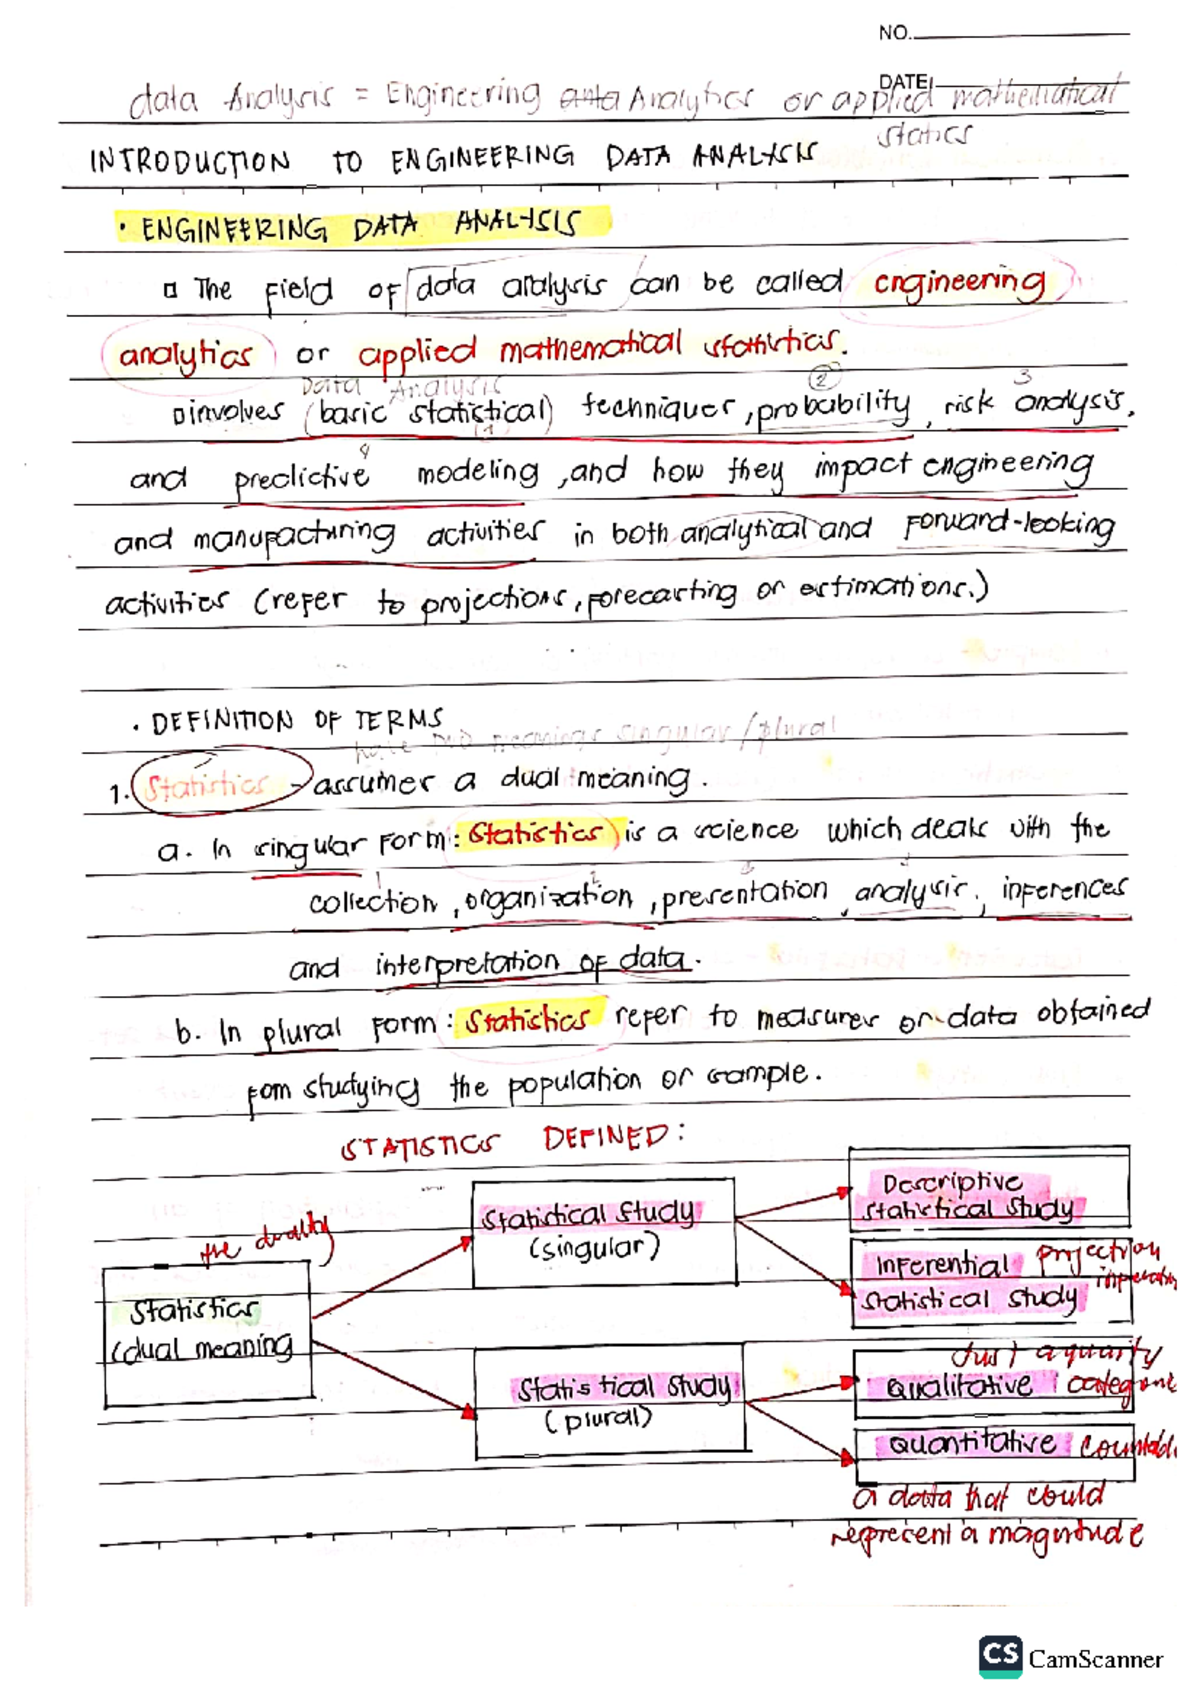 NO.
DATE
data Analysis = Engineering Analytics or applied mathematical
statics
INTRODUCTION TO ENGINEERING DATA ANALYSIS
• ENGINEERING DATA ANALYSIS
The field of data analysis can be called engineering
analytics or applied mathematical statistics.
Data Analysis 2 3
involves (basic statistical) techniques, probability, risk analysis,
4
and predictive modeling, and how they impact engineering
and manufacturing activities in both analytical and forward-looking
activities (refer to projections, forecasting or estimations.)
• DEFINITION OF TERMS
have two meanings singular/plural
1. Statistics - assumes a dual meaning.
a. In singular form: Statistics is a science which deals with the
collection, organization, presentation, analysis, inferences
and interpretation of data.
b. In plural form: Statistics refer to measures or data obtained
fom studying the population or sample.
STATISTICS DEFINED:
the duality
Statistics
(dual meaning
Statistical study
(singular)
Descriptive
statistical study
Inferential projection
Statistical study
Statistical study
(plural)
Just a quality
Qualitative
Quantitative
a data that could
represent a magnitude
CS CamScanner